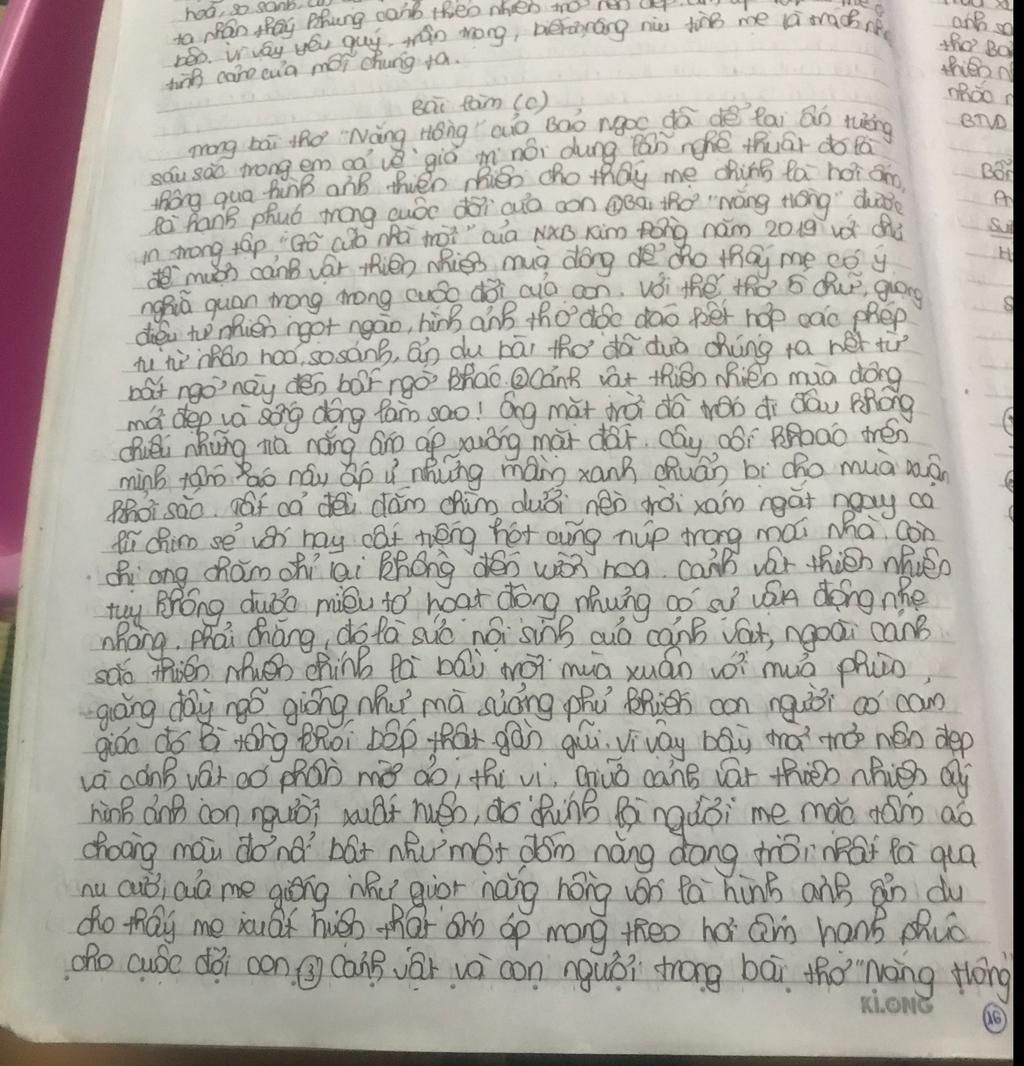 hoá, so sánh,
ta nhận thấy khung cảnh thiên nhiên trở nên đẹp
bền. vì vậy yêu quý, trân trọng, biết nâng niu tình mẹ là trách nh
tình cảm của mỗi chúng ta.
Bài làm (c)
Trong bài thơ "Nắng Hồng" của Bảo Ngọc đã để lại ấn tượng
sâu sắc trong em cả về giá trị nội dung lẫn nghệ thuật đó là
thông qua hình ảnh thiên nhiên cho thấy mẹ chính là hơi ấm,
là hạnh phúc trong cuộc đời của con ① Bài thơ "Nắng Hồng" được
in trong tập "Gõ cửa nhà trời" của NXB Kim Đồng năm 2019 với chủ
đề mượn cảnh vật thiên nhiên mùa đông để cho thấy mẹ có ý
nghĩa quan trọng trong cuộc đời của con. Với thể thơ 5 chữ, giọng
điệu tự nhiên ngọt ngào, hình ảnh thơ độc đáo kết hợp các phép
tu từ nhân hoá, so sánh, ẩn dụ bài thơ đã đưa chúng ta hết từ
bất ngờ này đến bất ngờ khác. ② Cảnh vật thiên nhiên mùa đông
mới đẹp và sống động làm sao! Ông mặt trời đã trốn đi đâu không
chiếu những tia nắng ấm áp xuống mặt đất. cây cối khoác trên
mình tấm áo nâu ấp ủ những mầm xanh chuẩn bị cho mùa xuân
khởi sắc. Tất cả đều đắm chìm dưới nền trời xám ngắt ngay cả
lũ chim sẻ vốn hay cất tiếng hót cũng núp trong mái nhà. Còn
chị ong chăm chỉ lại không đến vườn hoa. Cảnh vật thiên nhiên
tuy không được miêu tả hoạt động nhưng có sự vận động nhẹ
nhàng. Phải chăng, đó là sức nội sinh của cảnh vật, ngoài cảnh
sắc thiên nhiên chính là bầu trời mùa xuân với mưa phùn,
giăng đầy ngõ giống như mà sương phủ khiến con người có cảm
giác đó là tầng khói bếp thật gần gũi. vì vậy bầu trời trở nên đẹp
và cảnh vật có phần mờ ảo, thi vị. Giữa cảnh vật thiên nhiên ấy
hình ảnh con người xuất hiện, đó chính là người mẹ mặc tấm áo
choàng màu đỏ nổi bật như một đốm nắng đang trôi nhất là qua
nụ cười của mẹ giống như giọt nắng hồng vốn là hình ảnh ẩn dụ
cho thấy mẹ xuất hiện thật ấm áp mang theo hơi ấm hạnh phúc
cho cuộc đời con ③ Cảnh vật và con người trong bài thơ "Nắng Hồng
KI.ONG
16